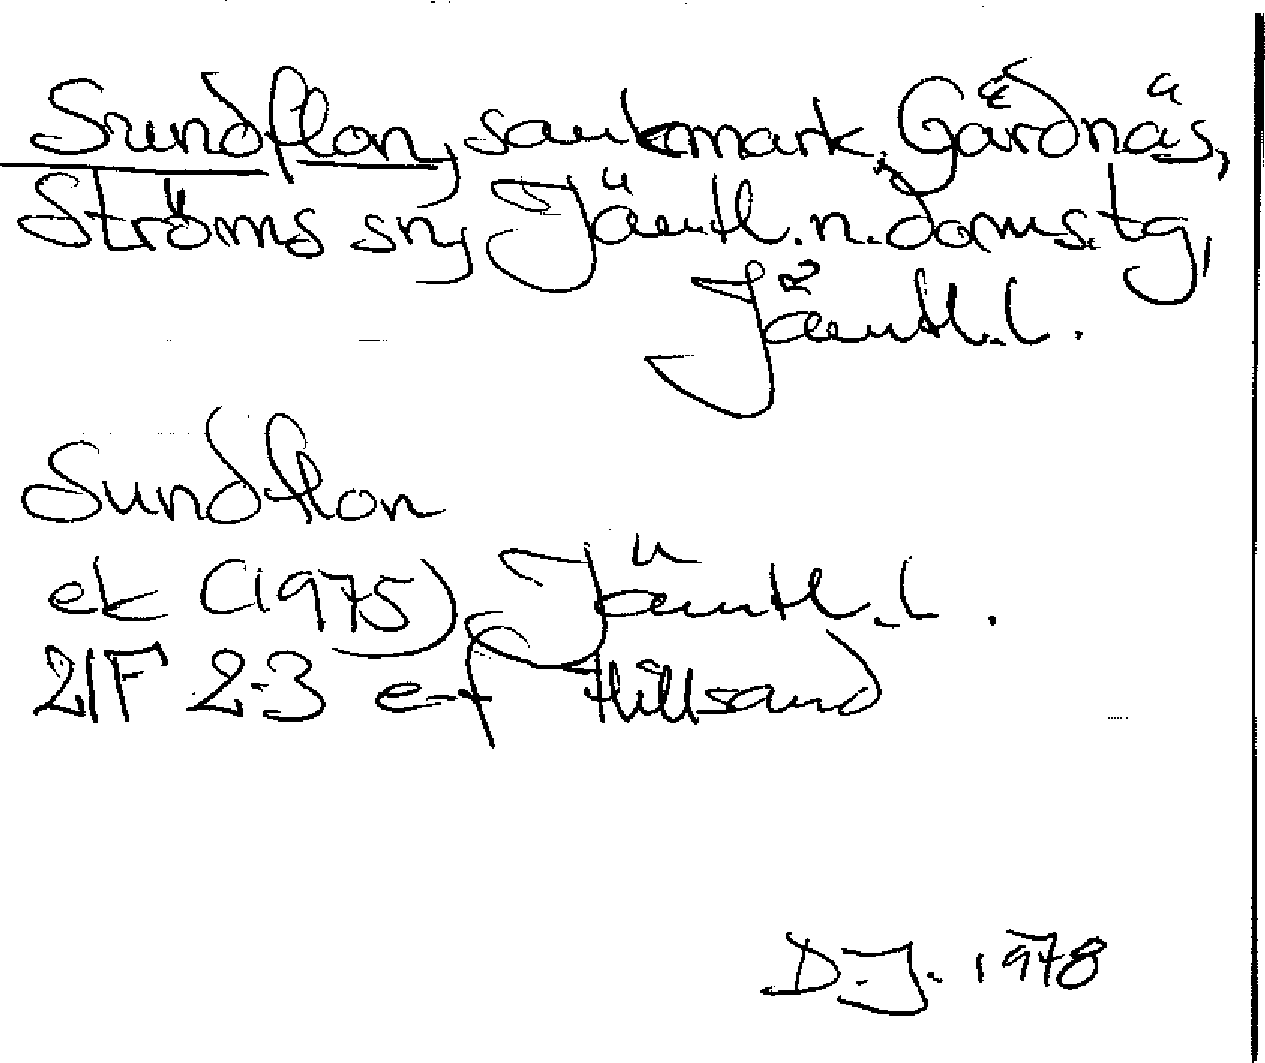 Sundflon, sankmark, Gärdnäs,
Ströms sn, Jämtl. n. doms.tg,
Jämtl.l.
Sundflon
ek (1975) Jämtl.l.
21F 2-3 e-f Hillsand
D.J. 1978